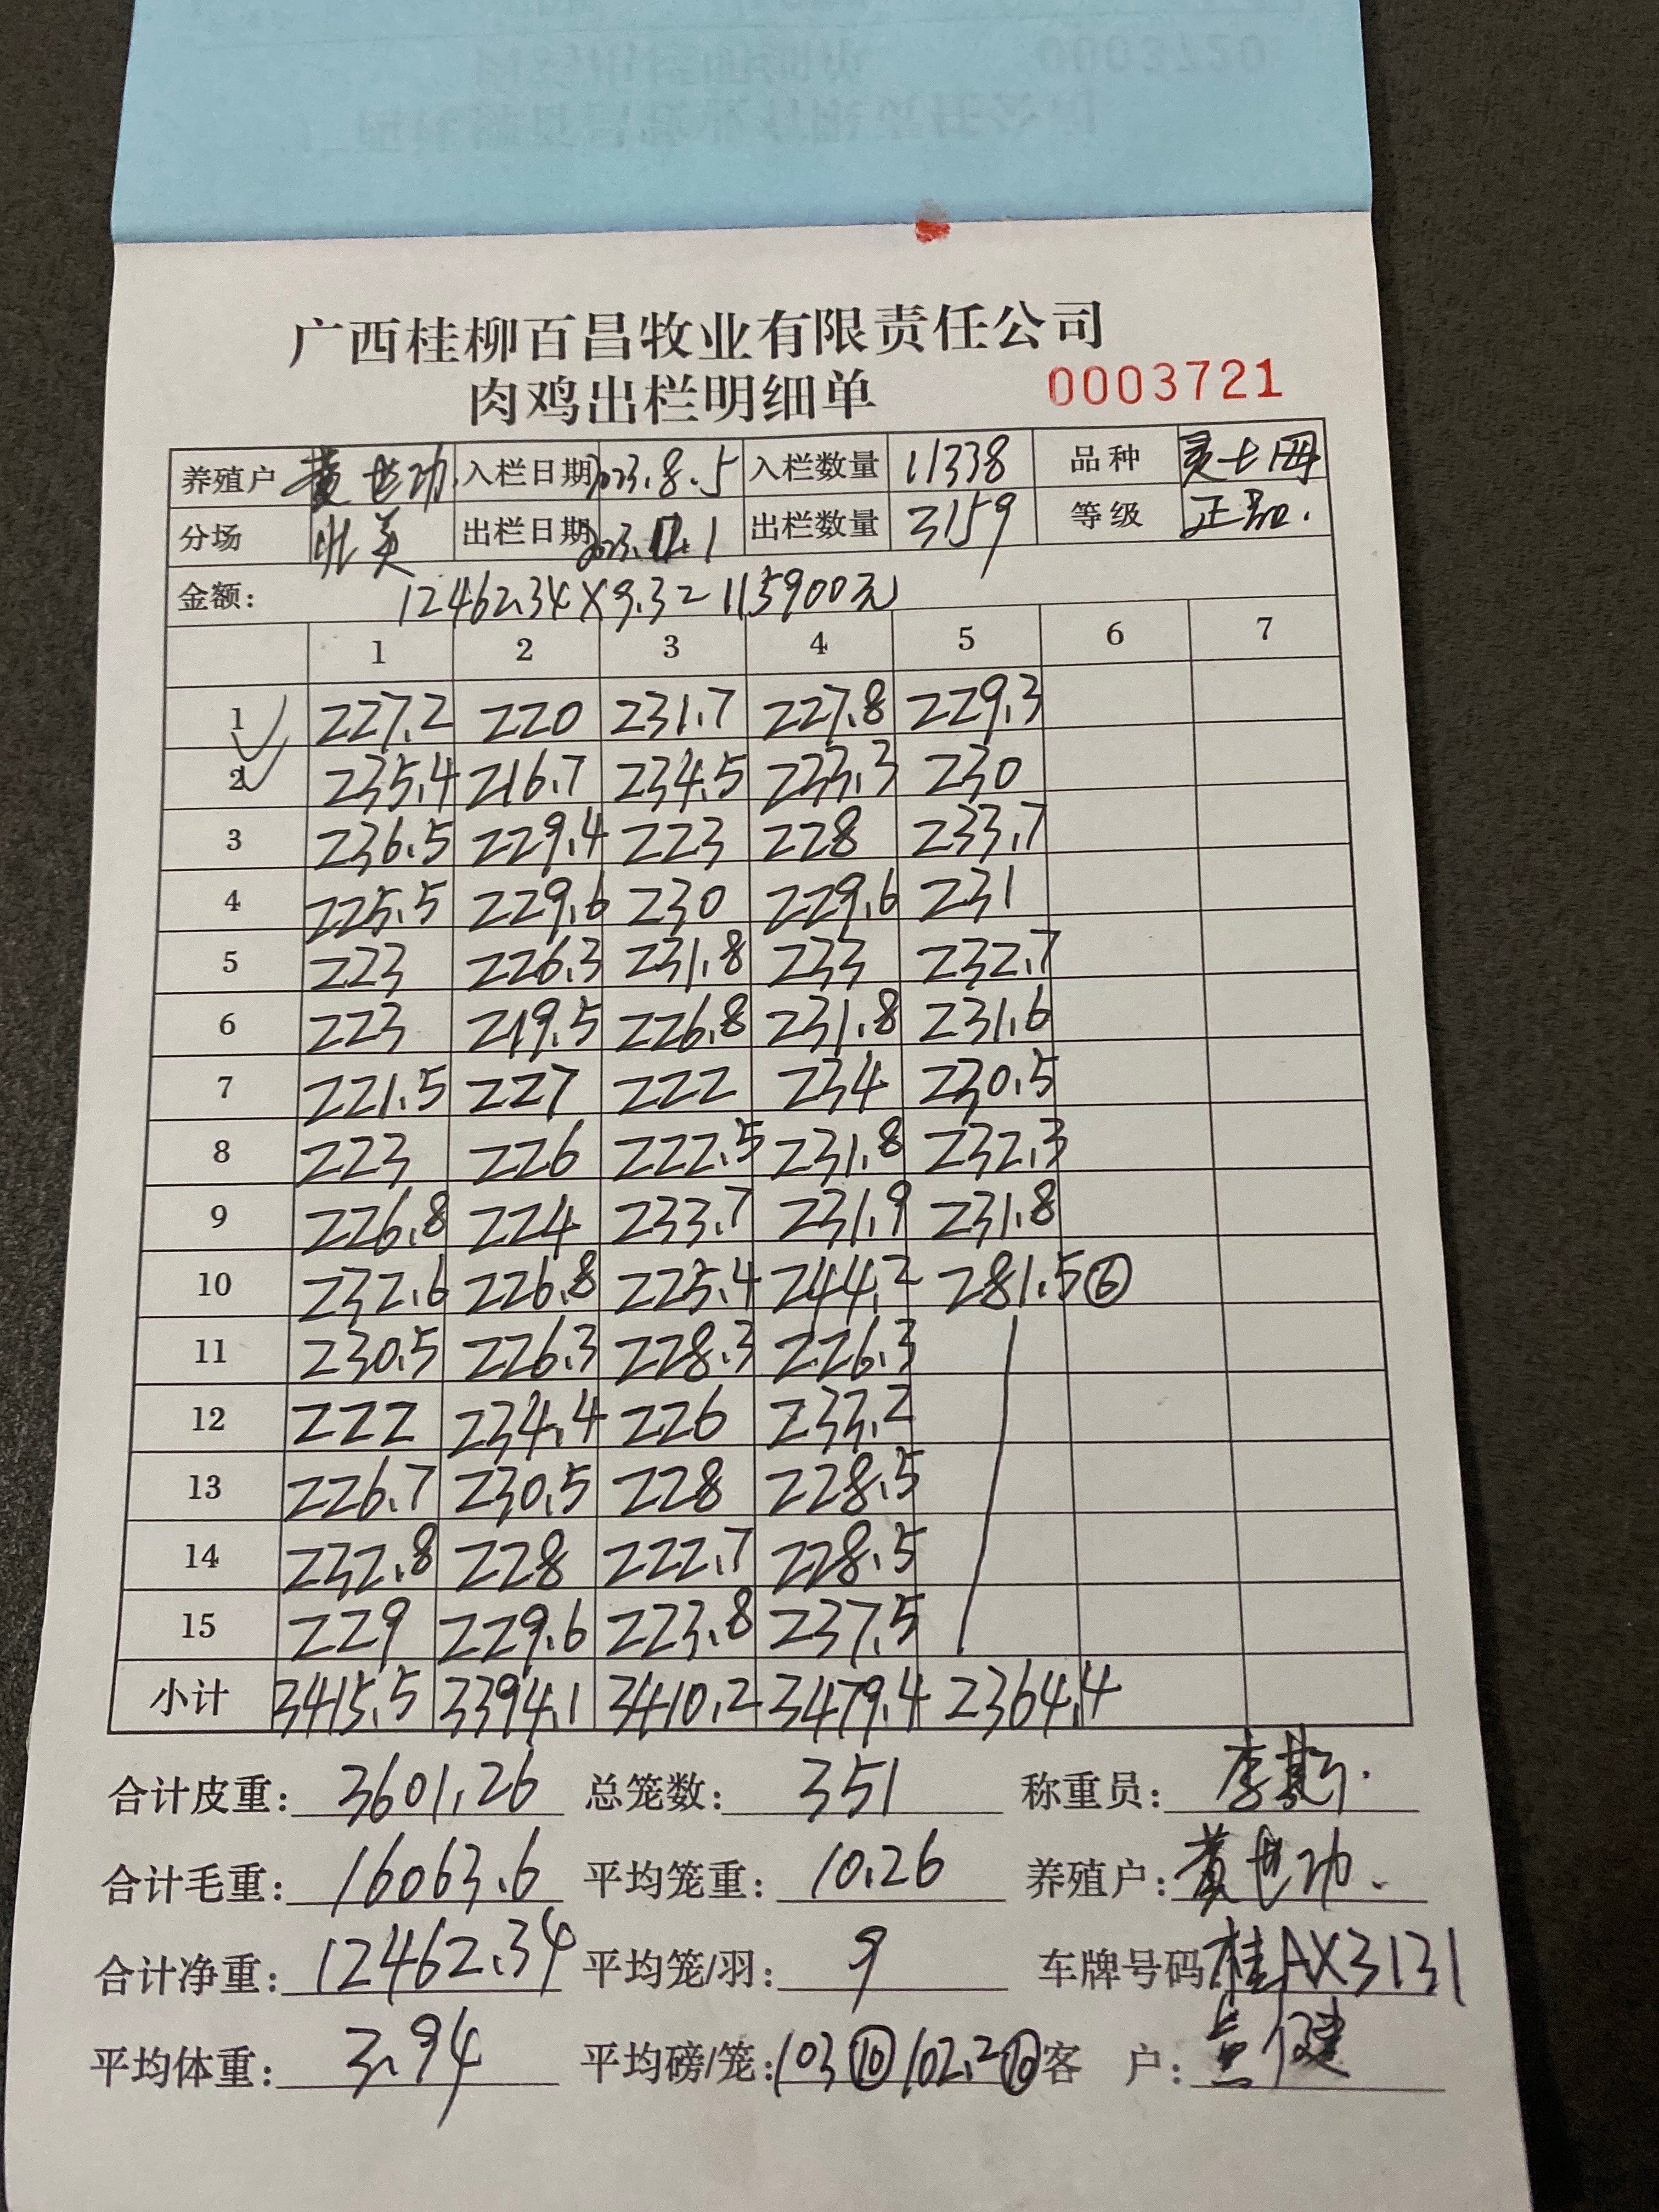 广西桂柳百昌牧业有限责任公司
肉鸡出栏明细单 0003721
养殖户 黄世功 入栏日期 2023.8.5 入栏数量 11338 品种
分场 出栏日期 2023.12.1 出栏数量 3159 等级 正品.
金额: 12462.34X9.3=115900元
1 2 3 4 5 6 7
1 227.2 220 231.7 227.8 229.3
2 235.4 216.7 234.5 233.3 230
3 236.5 229.4 223 228 233.7
4 225.5 229.6 230 229.6 231
5 223 226.3 231.8 233 232.7
6 223 219.5 226.8 231.8 231.6
7 221.5 227 222 234 230.5
8 223 226 222.5 231.8 232.3
9 226.8 224 233.7 231.9 231.8
10 232.6 226.8 225.4 244.2 281.5⑥
11 230.5 226.3 228.3 226.3
12 222 234.4 226 233.2
13 226.7 230.5 228 228.5
14 232.8 228 222.7 228.5
15 229 229.6 223.8 237.5
小计 3415.5 3394.1 3410.2 3479.4 2364.4
合计皮重: 3601.26 总笼数: 351 称重员:
合计毛重: 16063.6 平均笼重: 10.26 养殖户: 黄世功.
合计净重: 12462.34 平均笼/羽: 9 车牌号码: 桂AX3131
平均体重: 3.94 平均磅/笼: 103⑩ 102.2⑩ 客 户: